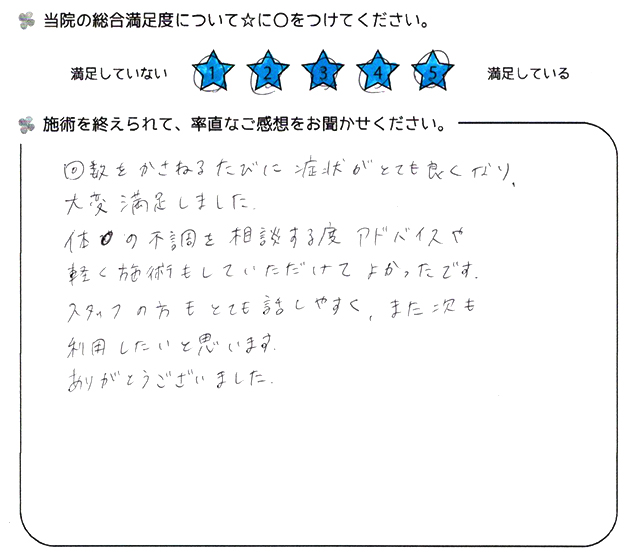 当院の総合満足度について☆に〇をつけてください。
満足していない 1 2 3 4 5 満足している
施術を終えられて、率直なご感想をお聞かせください。
回数をかさねるたびに症状がとても良くなり、
大変満足しました。
体の不調を相談する度アドバイスや
軽く施術もしていただけてよかったです。
スタッフの方もとても話しやすく、また次も
利用したいと思います。
ありがとうございました。